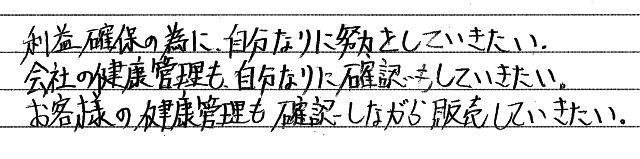 利益確保の為に、自分なりに努力をしていきたい.
会社の健康管理も、自分なりに確認もしていきたい。
お客様の健康管理も確認しながら販売していきたい。